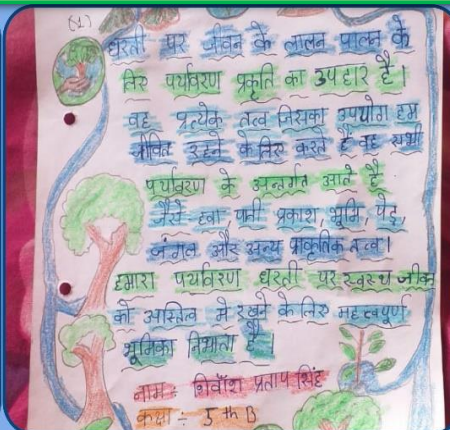 (51)
धरती पर जीवन के लालन पालन के
लिए पर्यावरण प्रकृति का उपहार है।
वह प्रत्येक तत्व जिसका उपयोग हम
जीवित रहने के लिए करते हैं वह सभी
पर्यावरण के अन्तर्गत आते है
जैसे हवा पानी प्रकाश, भूमि, पेड़,
जंगल और अन्य प्राकृतिक तत्व।
हमारा पर्यावरण धरती पर स्वस्थ जीवन
को अस्तित्व मे रखने के लिए महत्वपूर्ण
भूमिका निभाता है।
नाम - शिवाँश प्रताप सिंह
कक्षा ÷ 5 th B